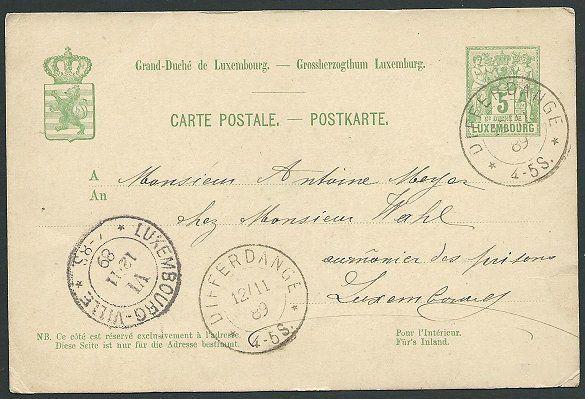 Grand-Duché de Luxembourg. — Grossherzogthum Luxemburg.
CARTE POSTALE. — POSTKARTE.
5
GD DUCHÉ DE
LUXEMBOURG
DIFFERDANGE
89
4-5S.
A
An
Monsieur Antoine Meyer
chez Monsieur Wahl
aumônier des prisons
Luxembourg
LUXEMBOURG-VILLE
7-8S
VI
12 11
89
DIFFERDANGE
12/11
89
4-5S.
NB. Ce côté est réservé exclusivement à l'adresse.
Diese Seite ist nur für die Adresse bestimmt.
Pour l'Intérieur.
Für's Inland.